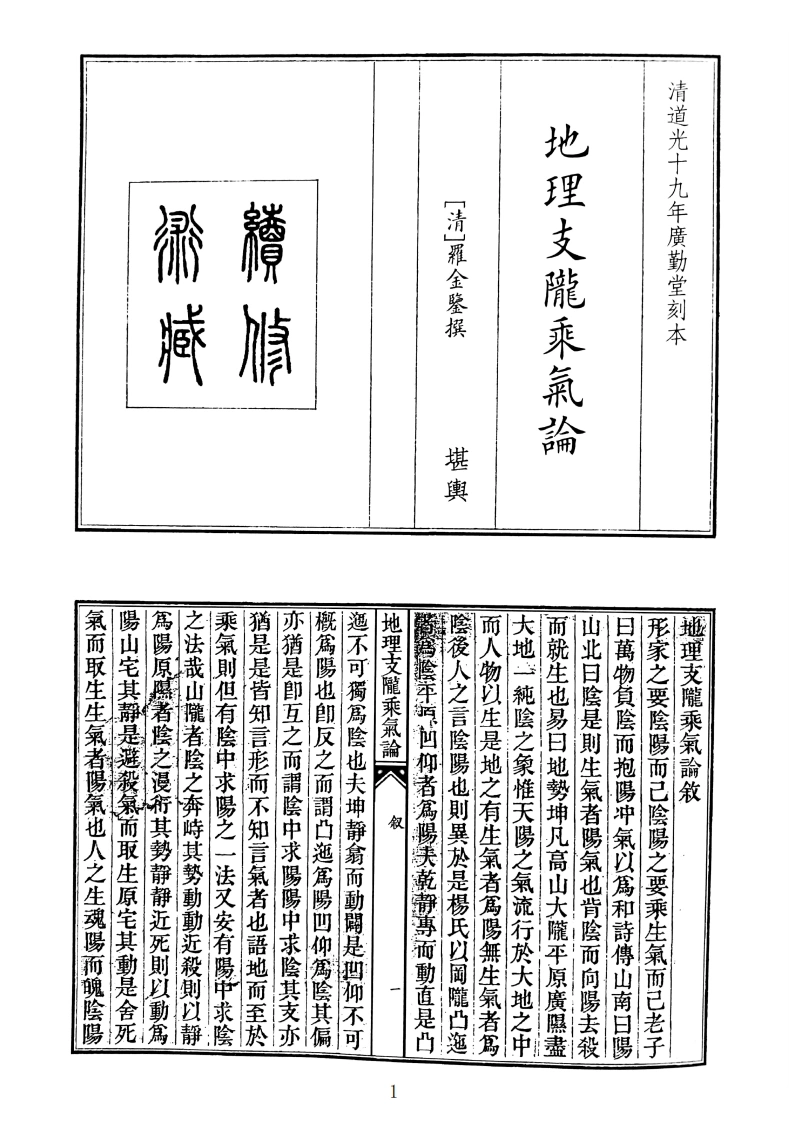 清道光十九年廣勤堂刻本
地理支隴乘氣論
[清]羅金鑒撰 堪輿
續修
術藏
地理支隴乘氣論敘
形家之要陰陽而已陰陽之要乘生氣而已老子
曰萬物負陰而抱陽冲氣以爲和詩傳山南曰陽
山北曰陰是則生氣者陽氣也背陰而向陽去殺
而就生也易曰地勢坤凡高山大隴平原廣隰盡
大地一純陰之象惟天陽之氣流行於大地之中
而人物以生是地之有生氣者爲陽無生氣者爲
陰後人之言陰陽也則異於是楊氏以岡隴凸迤
者爲陰平 凹仰者爲陽夫乾靜專而動直是凸
地理支隴乘氣論 敘 一
迤不可獨爲陰也夫坤靜翕而動闢是凹仰不可
概爲陽也卽反之而謂凸迤爲陽凹仰爲陰其偏
亦猶是卽互之而謂陰中求陽陽中求陰其支亦
猶是是皆知言形而不知言氣者也語地而至於
乘氣則但有陰中求陽之一法又安有陽中求陰
之法哉山隴者陰之奔峙其勢動動近殺則以靜
爲陽原隰者陰之漫衍其勢靜靜近死則以動爲
陽山宅其靜是避殺氣而取生原宅其動是舍死
氣而取生生氣者陽氣也人之生魂陽而魄陰陽
1